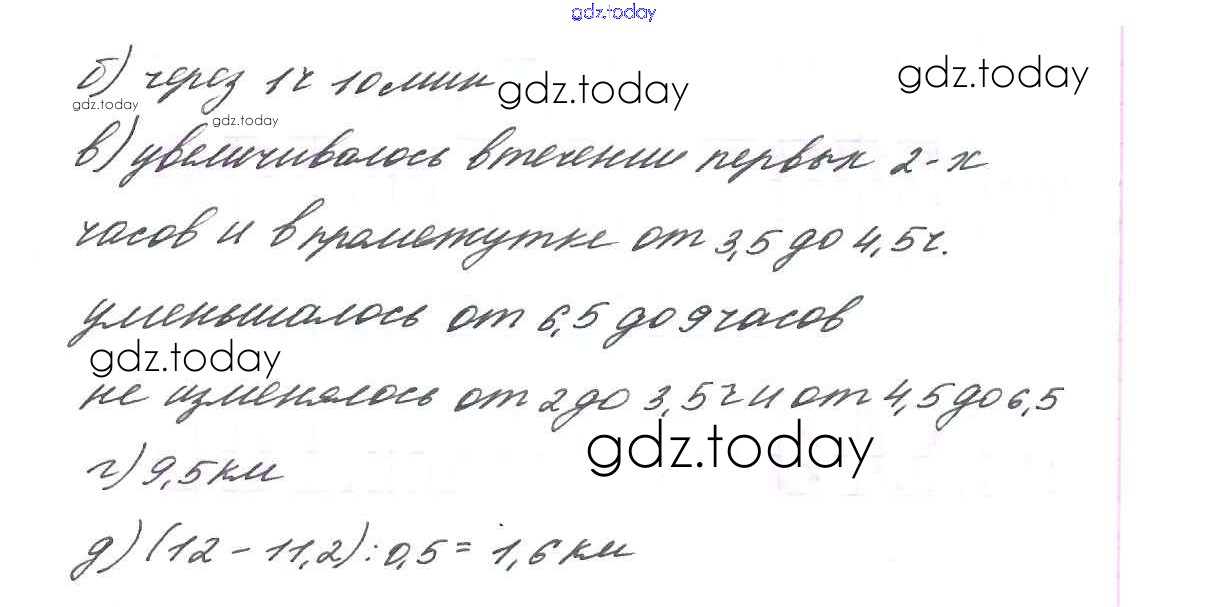 gdz.today
б) через 1ч 10мин
gdz.today
gdz.today
gdz.today
gdz.today
в) увеличивалось в течении первых 2-х
часов и в промежутке от 3,5 до 4,5ч.
уменьшалось от 6,5 до 9 часов
gdz.today
не изменялось от 2 до 3,5 ч и от 4,5 до 6,5
gdz.today
г) 9,5 км
д) (12 - 11,2) : 0,5 = 1,6 км